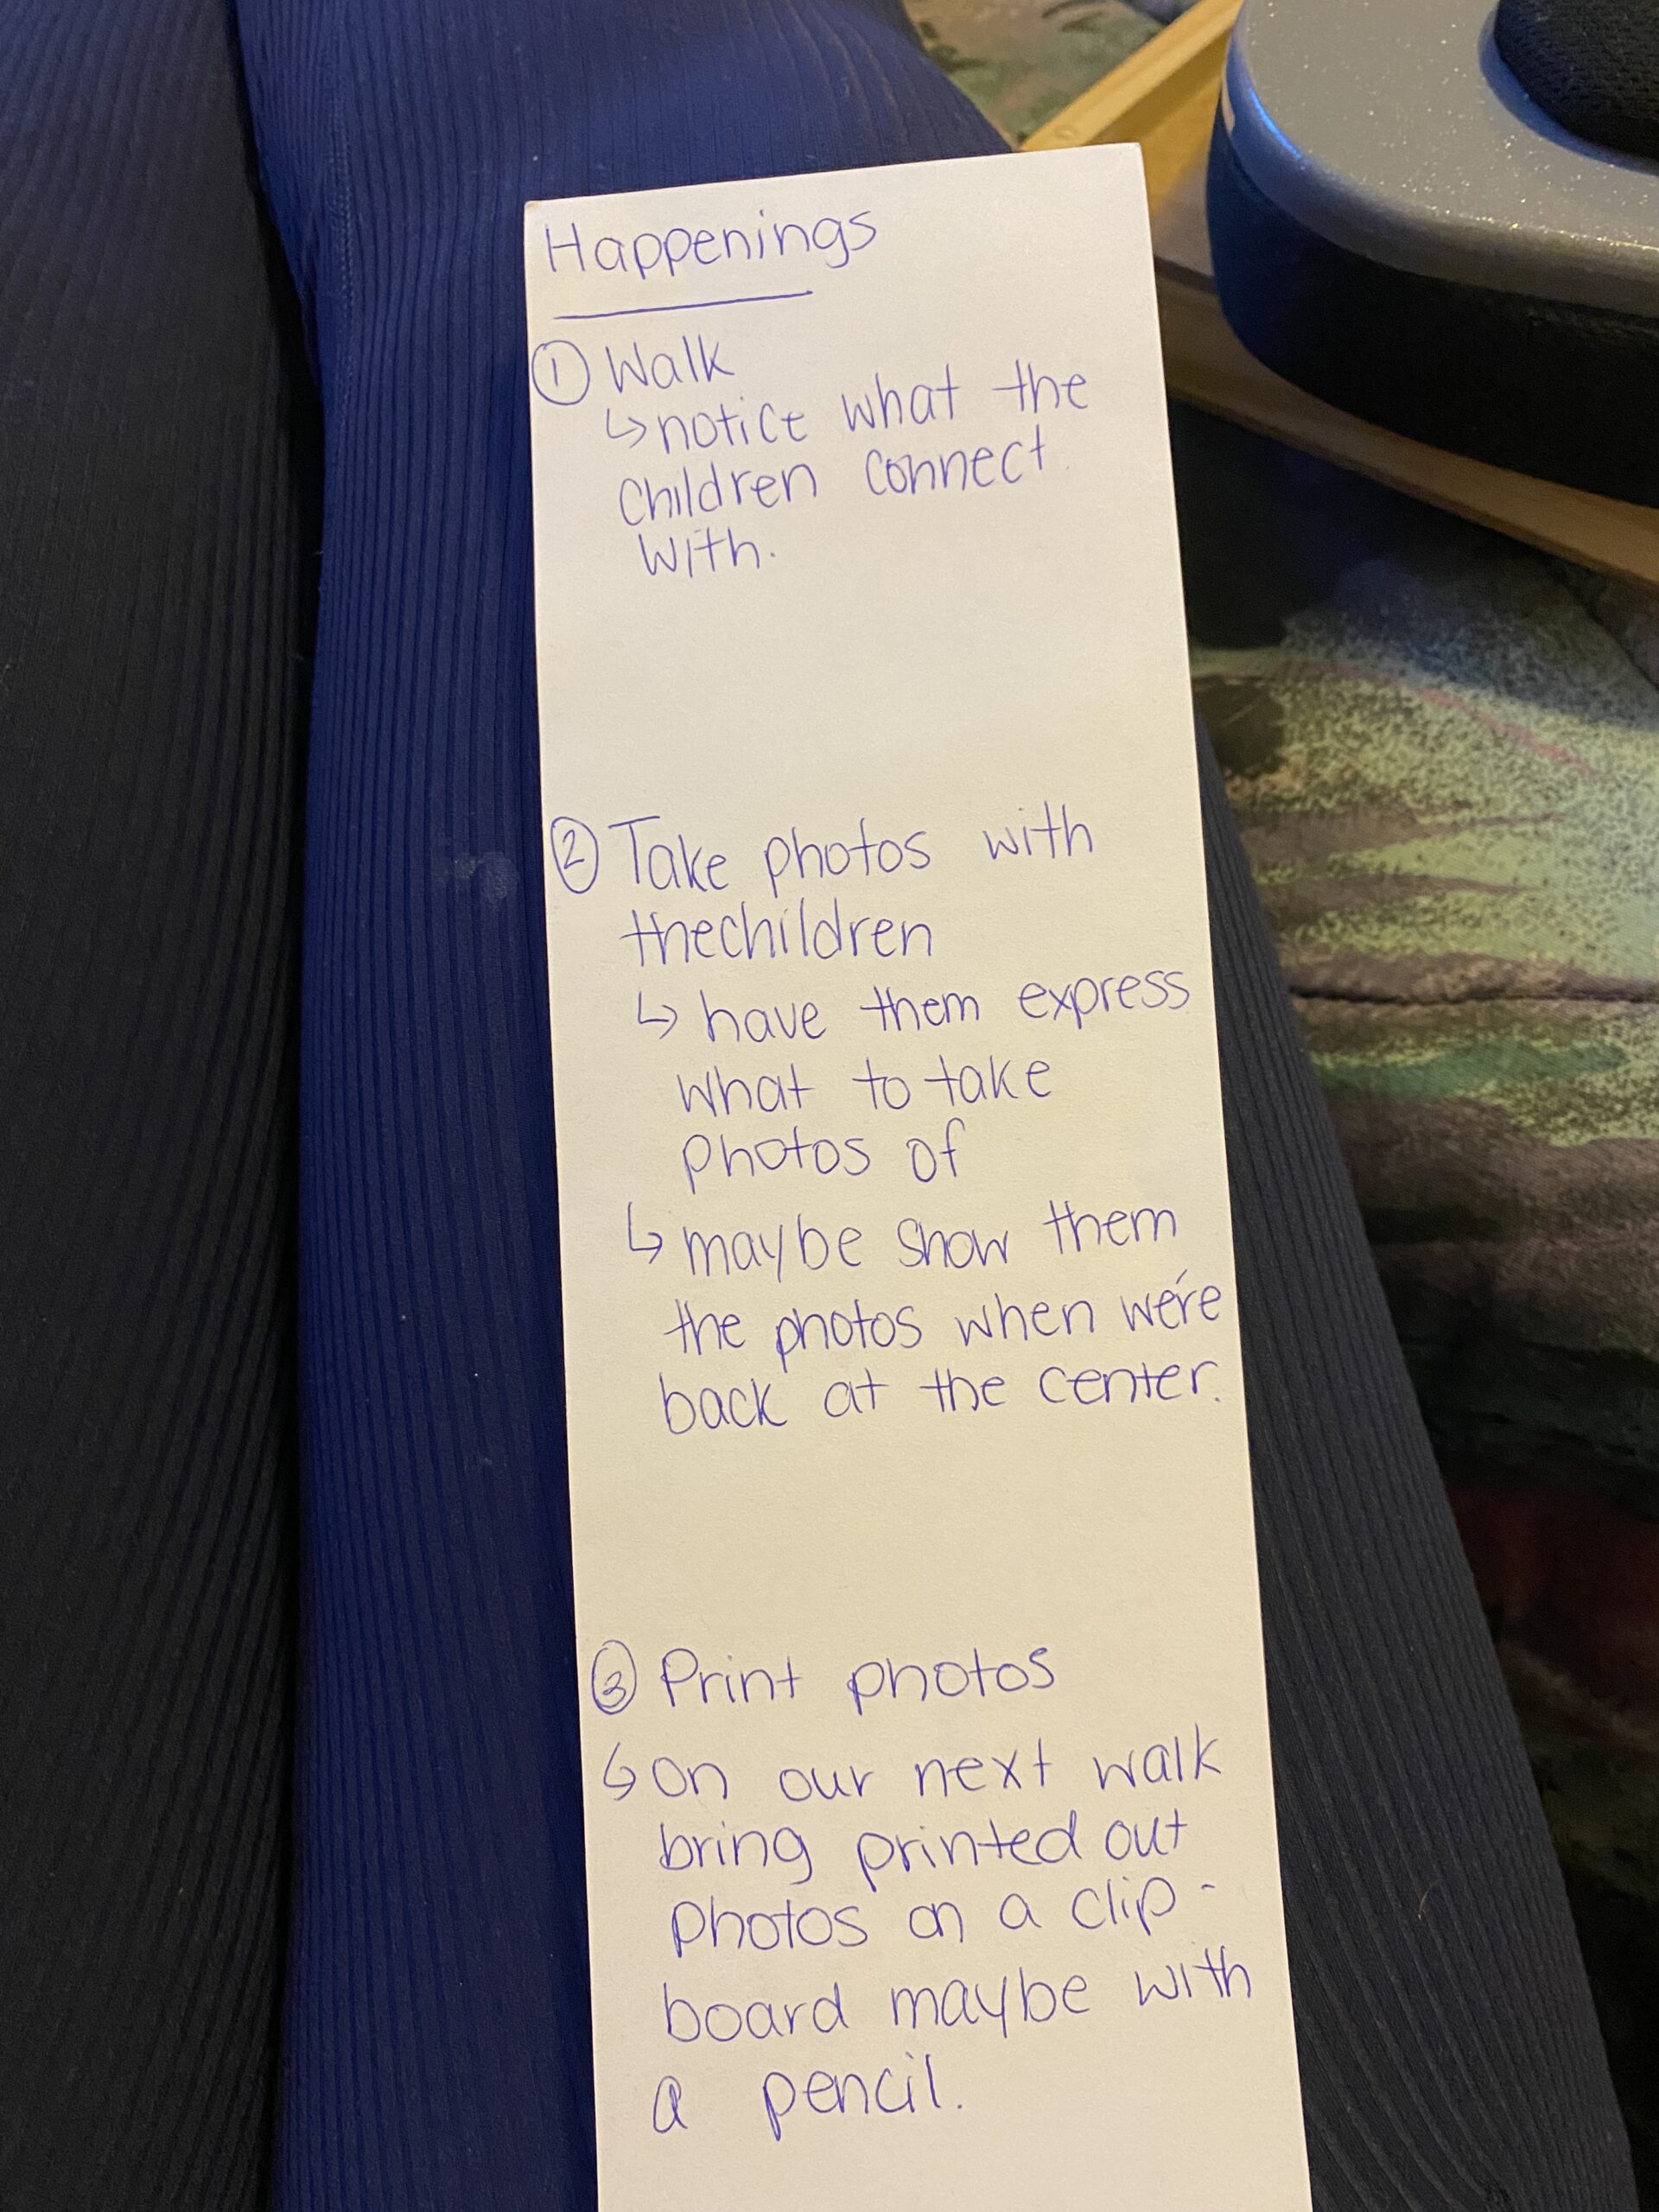 Happenings
① Walk
↳ notice what the
children connect
with.
② Take photos with
thechildren
↳ have them express
what to take
photos of
↳ maybe show them
the photos when we're
back at the center.
③ Print photos
↳ on our next walk
bring printed out
photos on a clip-
board maybe with
a pencil.